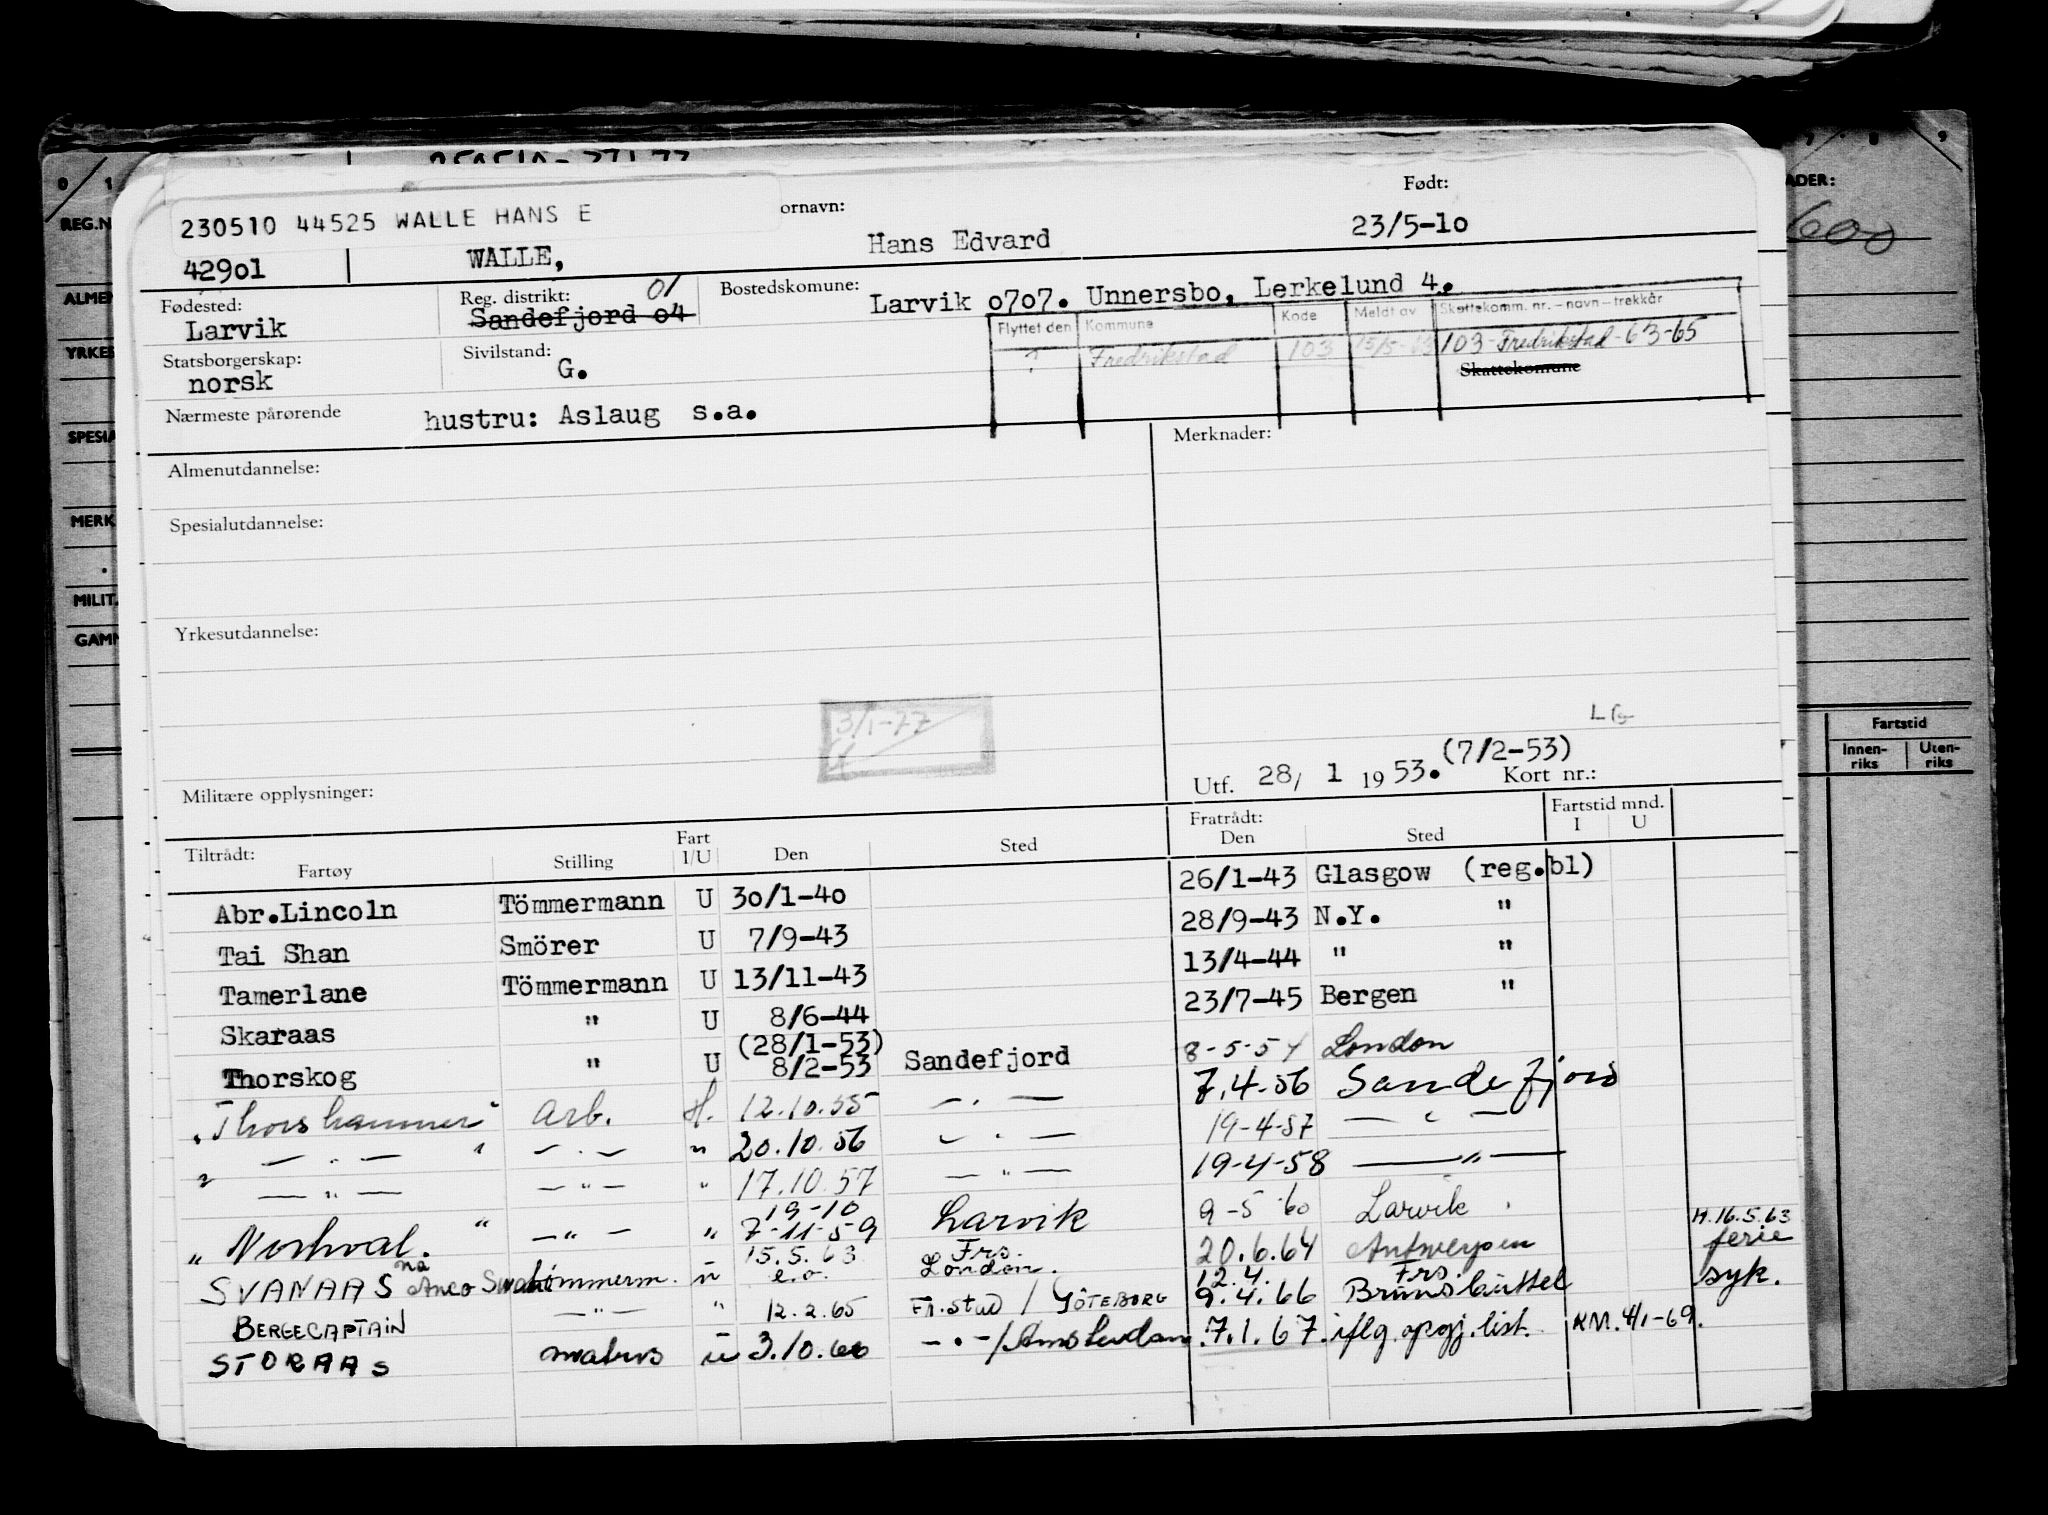 230510 44525 WALLE HANS E
ornavn:
Født:
42901 WALLE, Hans Edvard 23/5-10
Fødested: Larvik
Reg. distrikt: 01
Sandefjord o4
Bostedskomune: Larvik o7o7. Unnersbo, Lerkelund 4.
Statsborgerskap: norsk
Sivilstand: G.
Flyttet den Kommune Kode Meldt av Skattekomm. nr. – navn – trekkår
? Fredrikstad 103 15/5-63 103-Fredrikstad-63-65
Skattekomune
Nærmeste pårørende hustru: Aslaug s.a.
Merknader:
Almenutdannelse:
Spesialutdannelse:
Yrkesutdannelse:
3/1-77
Militære opplysninger:
(7/2-53)
Utf. 28/ 1 1953. Kort nr.:
Tiltrådt: Fartøy Stilling Fart I/U Den Sted Fratrådt: Den Sted Fartstid mnd. I U
Abr.Lincoln Tömmermann U 3o/1-4o 26/1-43 Glasgow (reg.bl)
Tai Shan Smörer U 7/9-43 28/9-43 N.Y. "
Tamerlane Tömmermann U 13/11-43 13/4-44 " "
Skaraas " U 8/6-44 23/7-45 Bergen "
(28/1-53)
Thorskog " U 8/2-53 Sandefjord 8-5-54 London
"Thorshammer" arb. H. 12.10.55 — " — 7.4-56 Sandefjord
" — " — " — " — " 20.10.56 — " — 19-4-57 — " —
— " — — " — " 17.10.57 — " — 19-4-58 — " —
19-10
"Norhval." — " — " 7-11-59 Larvik 9-5-60 Larvik
15.5.63 Frs. H.16.5.63
SVANAAS nå Anco Swan tømmerm. U e.o. London. 20.6.64 Antwerpen ferie
12.4. Frs.
BERGECAPTAIN — " — " 12.2.65 Fr.stad / GÖTEBORG 9.4.66 Brunsbüttel syk.
STORAAS matros U 3.10.66 — " — /Amsterdam 7.1.67. iflg. opgj. list. KM. 4/1-69.
REG.N
ALMEN
YRKES
SPESIA
MERK
MILIT.
GAMM
ADER:
600
Fartstid
Innen-riks Uten-riks